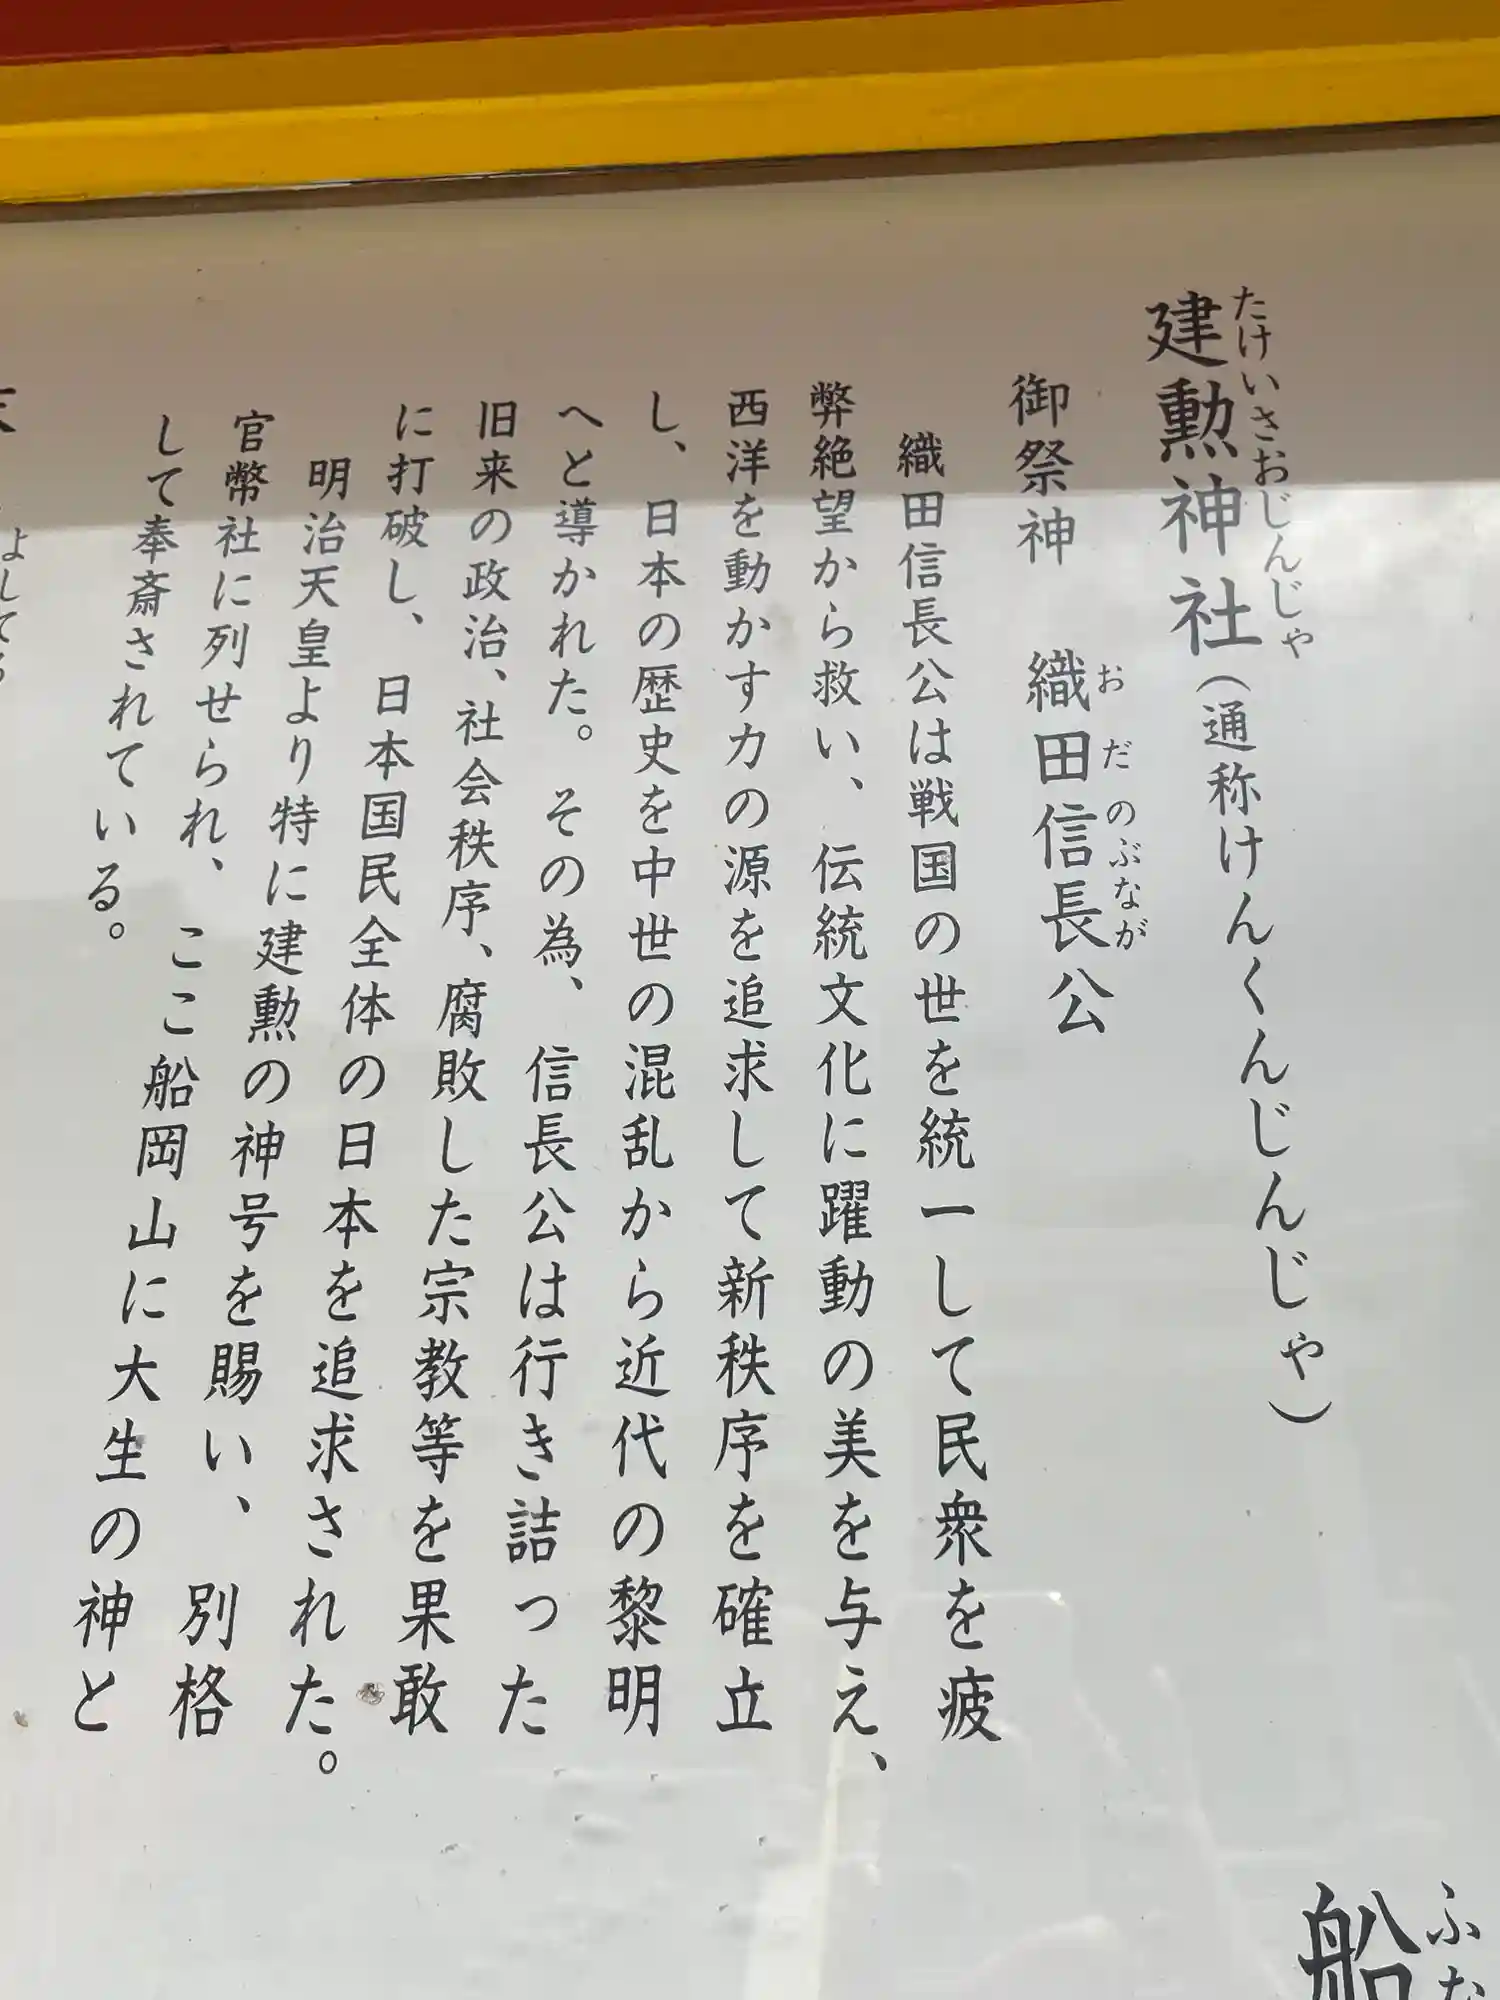 建勲神社(通称けんくんじんじゃ)
たけいさおじんじゃ
御祭神 織田信長公
おだのぶなが
織田信長公は戦国の世を統一して民衆を疲
弊絶望から救い、伝統文化に躍動の美を与え、
西洋を動かす力の源を追求して新秩序を確立
し、日本の歴史を中世の混乱から近代の黎明
へと導かれた。その為、信長公は行き詰った
旧来の政治、社会秩序、腐敗した宗教等を果敢
に打破し、日本国民全体の日本を追求された。
明治天皇より特に建勲の神号を賜い、別格
官幣社に列せられ、ここ船岡山に大生の神と
して奉斎されている。
船
ふな